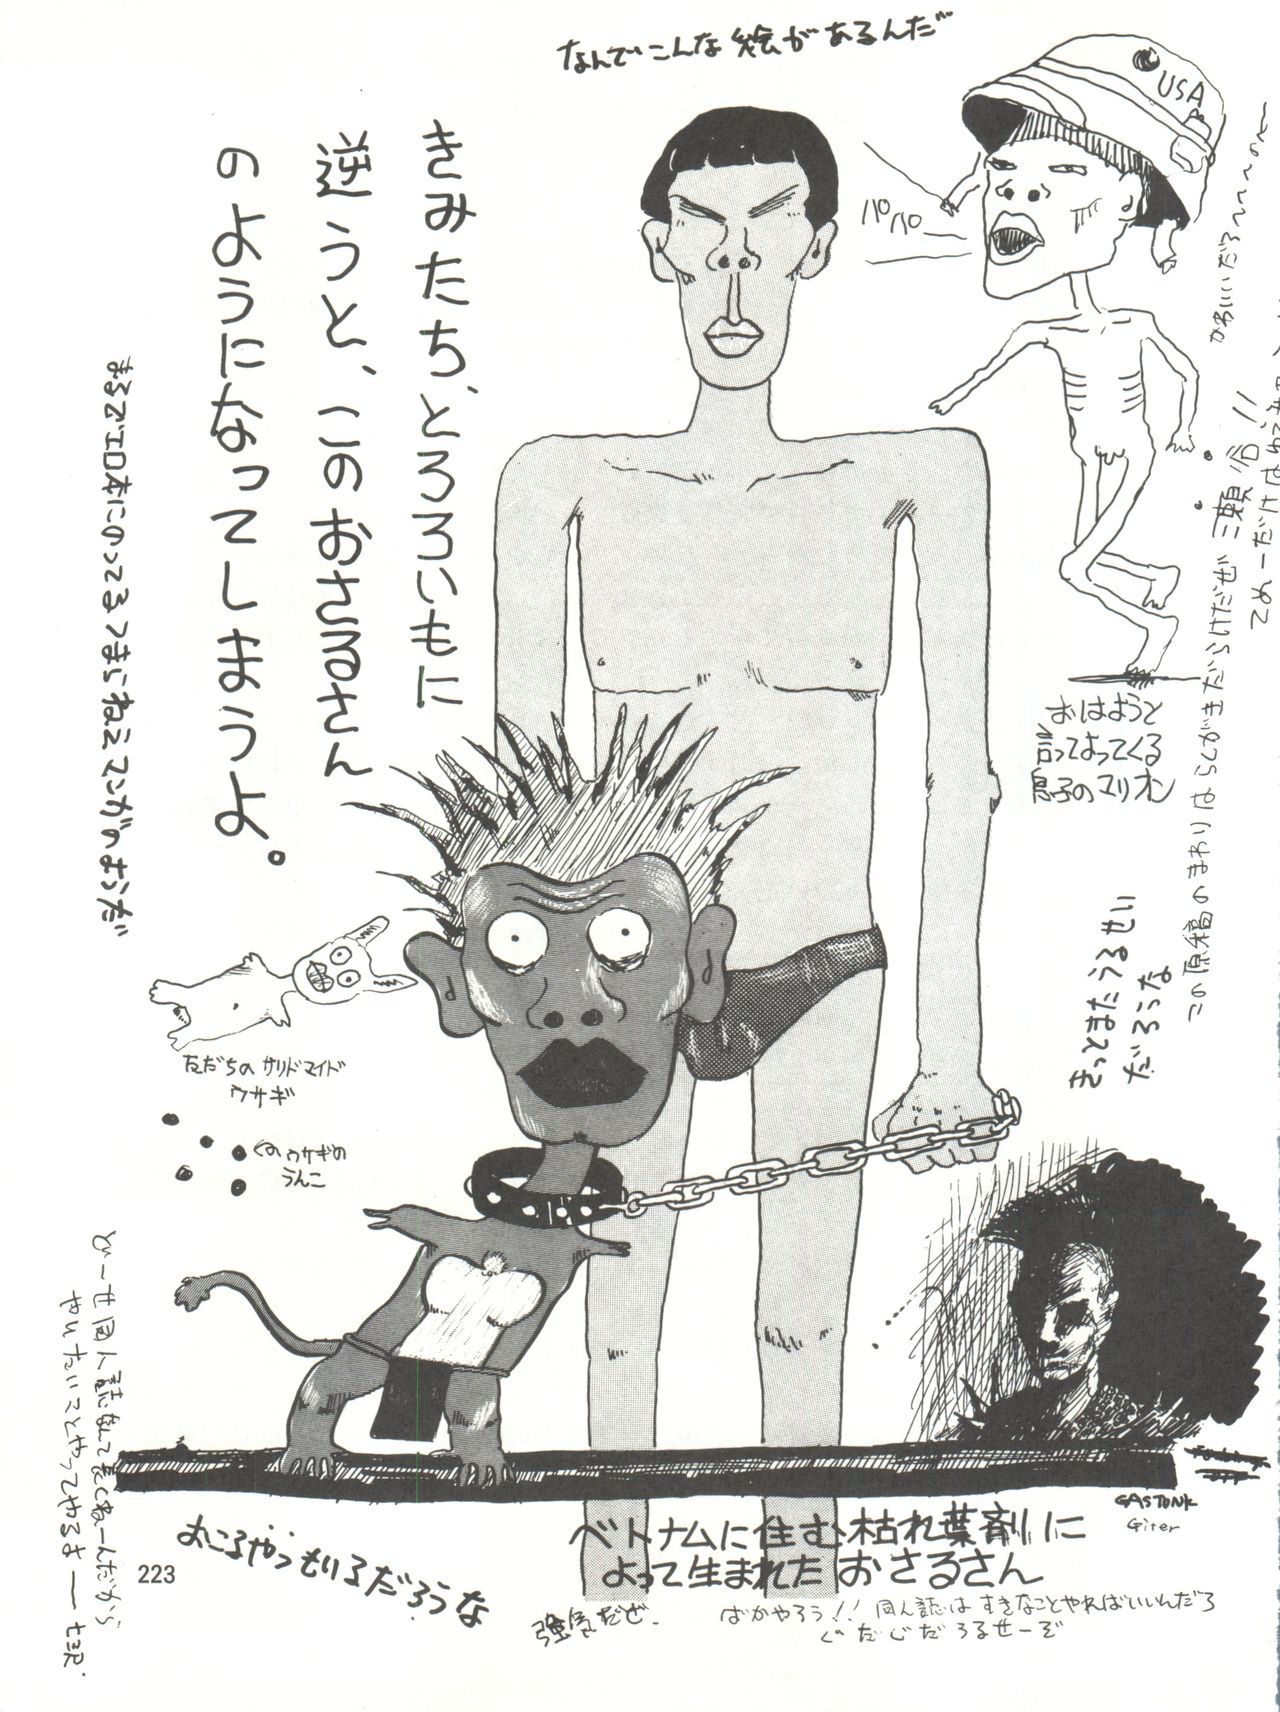 なんでこんな絵があるんだ
USA
パパー
きみたち、とろろいもに
逆うと、このおさるさん
のようになってしまうよ。
まるでエロ本にのってるつまらねえマンガのようだ
かわいいだろ〜〜〜の〜
この原稿のまわりはらくがきだらけだぜ
おはようと
言ってよってくる
息子のマリオン
きっとまたうるせい
だろうな
ただちの サリドマイド
ウサギ
くのウサギの
うんこ
どーせ同人誌なんて長くねーんだから
やりたいことやってやるさ
GASTONK
Giter
ベトナムに住む枯れ葉剤に
よって生まれた おさるさん
おこるやつもいるだろうな
223
強気だぜ.
ばかやろう!! 同人誌は すきなことやればいいんだろ
ぐだぐだうるせーぞ